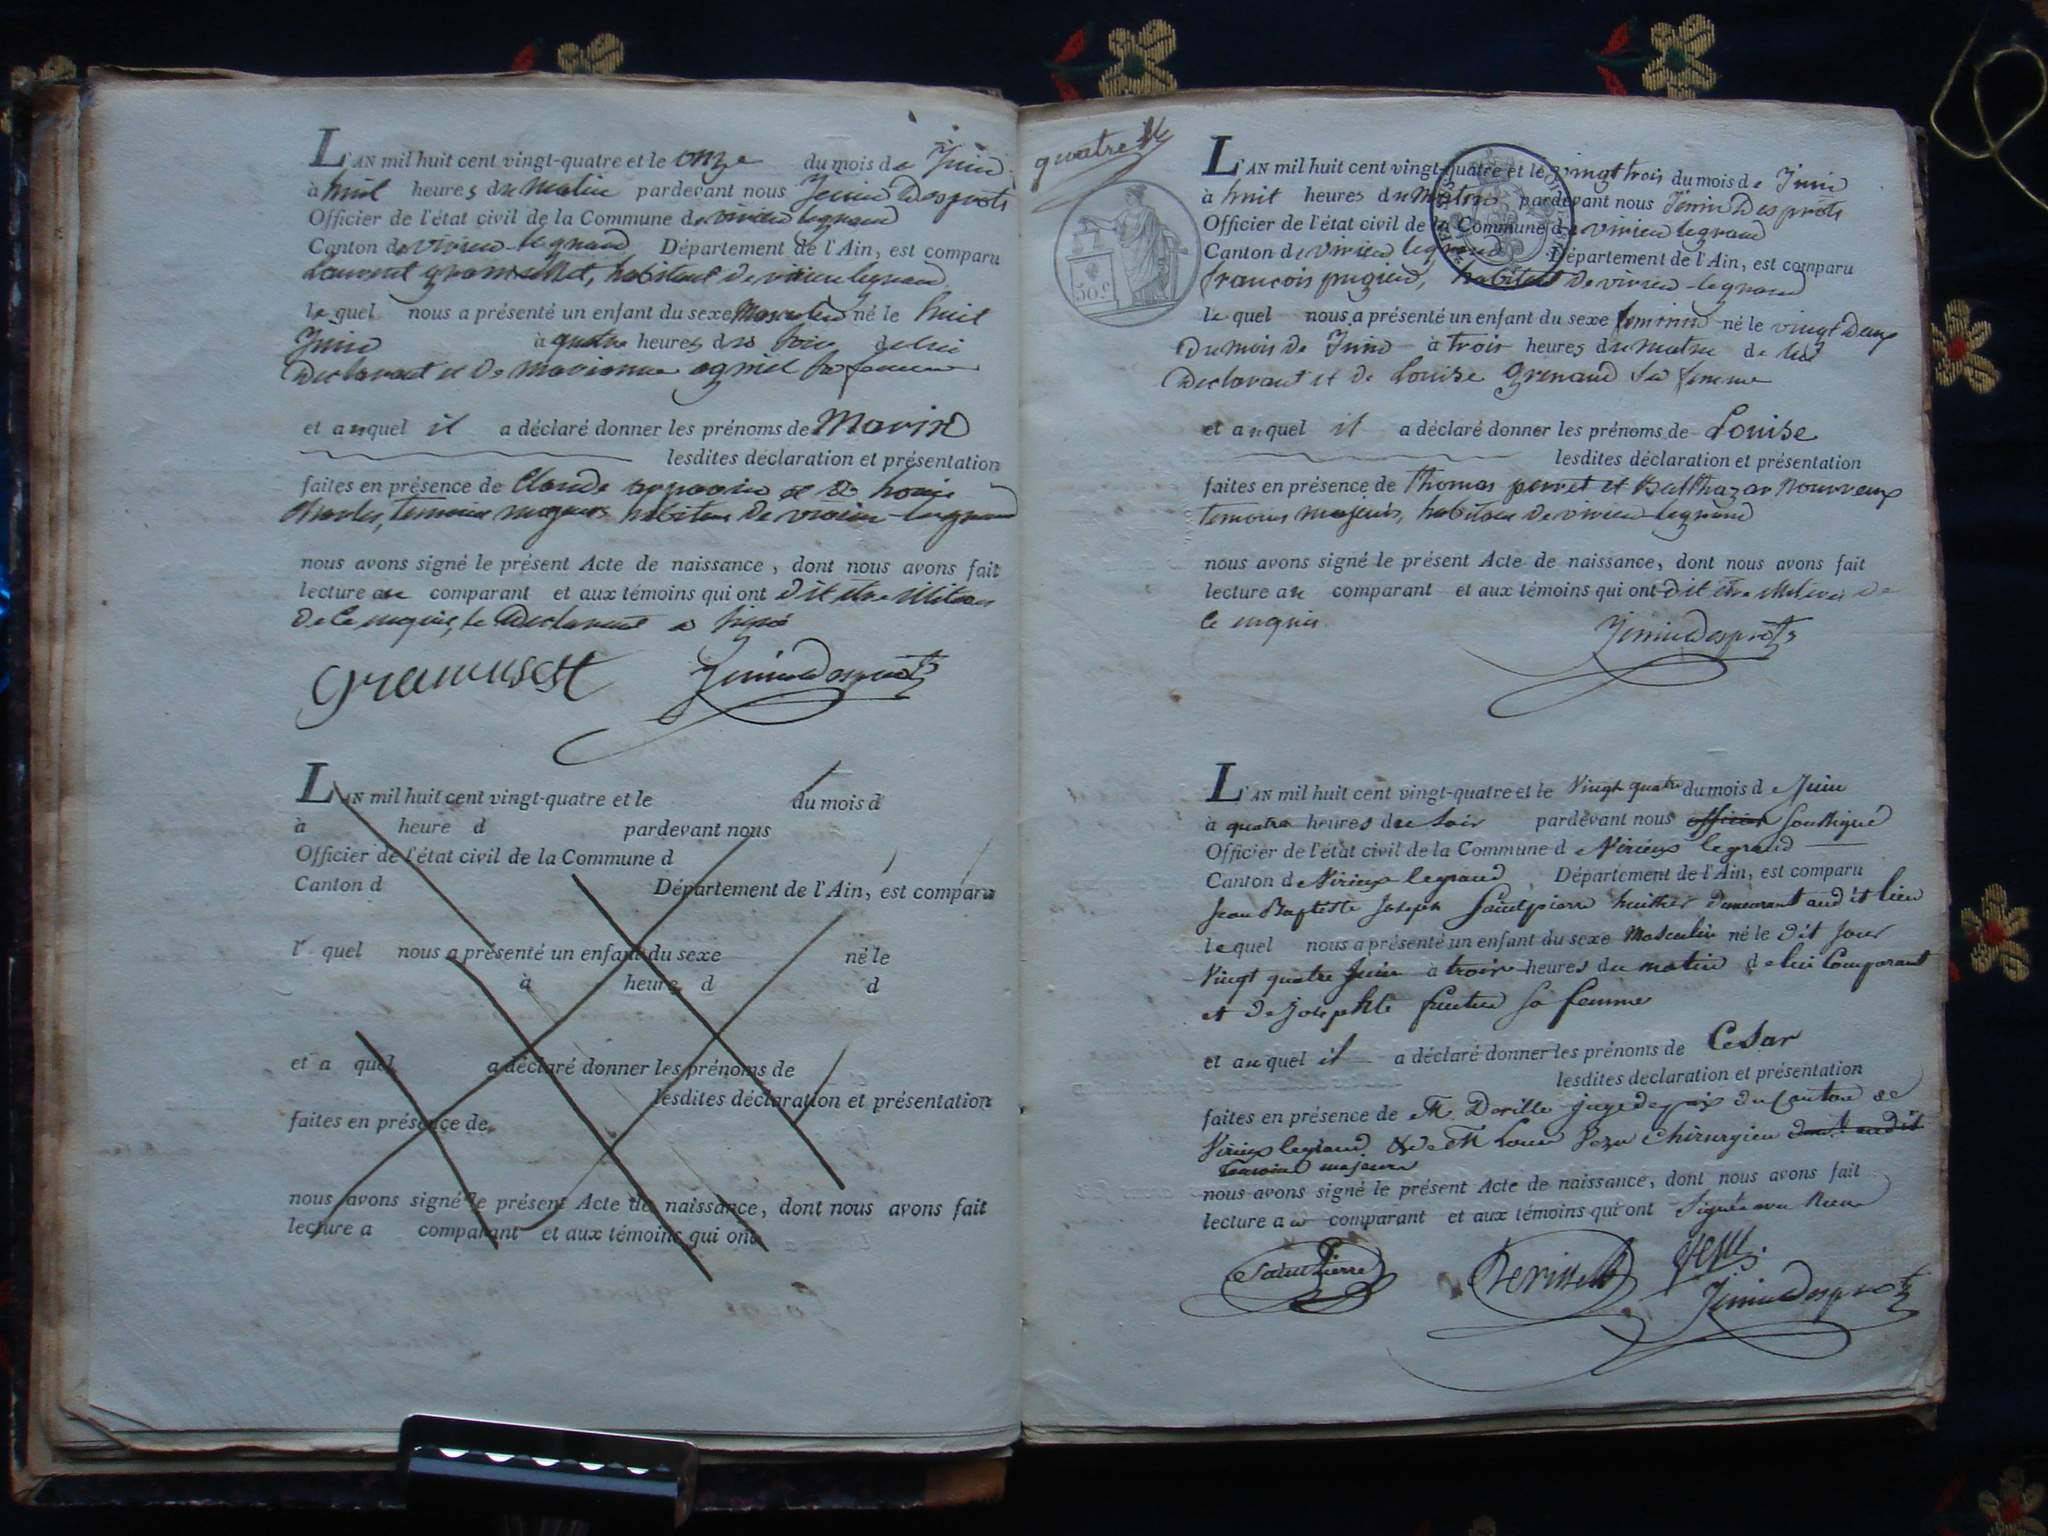 L'AN mil huit cent vingt-quatre et le onze du mois de Juin
à huit heures du matin pardevant nous Jenin Desprots
Officier de l'état civil de la Commune de virieu legrand
Canton de virieu-legrand Département de l'Ain, est comparu
Laurent gramusset, habitant de virieu legrand
le quel nous a présenté un enfant du sexe Masculin né le huit
Juin à quatre heures du soir de lui
Declarant et de marianne sa femme
et auquel il a déclaré donner les prénoms de Marin
lesdites déclaration et présentation
faites en présence de Claude et de
Charles, temoins majeurs habitans de virieu-legrand
nous avons signé le présent Acte de naissance, dont nous avons fait
lecture au comparant et aux témoins qui ont dit être illiterés
De ce enquis, le Declarant a signé
Gramusset Jenin Desprots
L'AN mil huit cent vingt-quatre et le du mois d
à heure d pardevant nous
Officier de l'état civil de la Commune d
Canton d Département de l'Ain, est comparu
l quel nous a présenté un enfant du sexe né le
à heure d d
et a quel a déclaré donner les prénoms de
lesdites déclaration et présentation
faites en présence de
nous avons signé le présent Acte de naissance, dont nous avons fait
lecture a comparant et aux témoins qui ont
quatre
50 c.
L'AN mil huit cent vingt-quatre et le vingt trois du mois de Juin
à huit heures du Matin pardevant nous Jenin Desprots
Officier de l'état civil de la Commune de virieu legrand
Canton de virieu legrand Département de l'Ain, est comparu
françois pugieu, habitant de virieu-legrand
le quel nous a présenté un enfant du sexe feminin né le vingt Deux
Du mois de Juin à trois heures du matin de lui
Declarant et de Louise Grinand sa femme
et auquel il a déclaré donner les prénoms de Louise
lesdites déclaration et présentation
faites en présence de thomas perret et Balthazar
temoins majeurs, habitans de virieu-legrand
nous avons signé le présent Acte de naissance, dont nous avons fait
lecture au comparant et aux témoins qui ont dit être illiterés de
ce enquis.
Jenin Desprots
L'AN mil huit cent vingt-quatre et le Vingt quatre du mois de Juin
à quatre heures du soir pardevant nous officier soussigné
Officier de l'état civil de la Commune de Virieux legrand
Canton de Virieux legrand Département de l'Ain, est comparu
Jean Baptiste Joseph Saintpierre huissier demeurant audit lieu
le quel nous a présenté un enfant du sexe Masculin né le dit jour
Vingt quatre Juin à trois heures du matin de lui Comparant
et de josephte sa femme
et auquel il a déclaré donner les prénoms de Cesar
lesdites declaration et présentation
faites en présence de M. juge de paix du Canton de
Virieux legrand & de M. Louis chirurgien audit
Temoins majeurs
nous avons signé le présent Acte de naissance, dont nous avons fait
lecture au comparant et aux témoins qui ont signés avec Nous
SaintPierre
Jenin Desprots